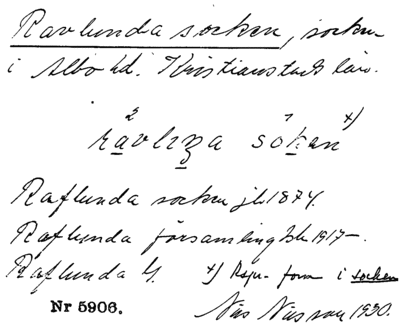 Ravlunda socken, socken
i Albo hd. Kristianstads län.
Raflunda socken jb 1874.
Raflunda församlingsbk 1917–.
Raflunda G. x) Resp. form i socken
Nr 5906. Nils Nilsson 1930.